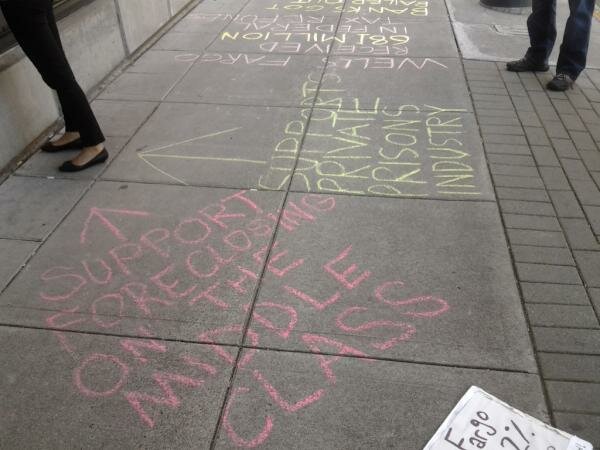 BANK GOT
IN FEDERAL
TAX REFUNDS
$81 MILLION
RECEIVED
WELLS FARGO
SUPPORTS
PRIVATE
PRISONS
INDUSTRY
SUPPORT
FORECLOSING
ON THE
MIDDLE
CLASS
Fargo
2%